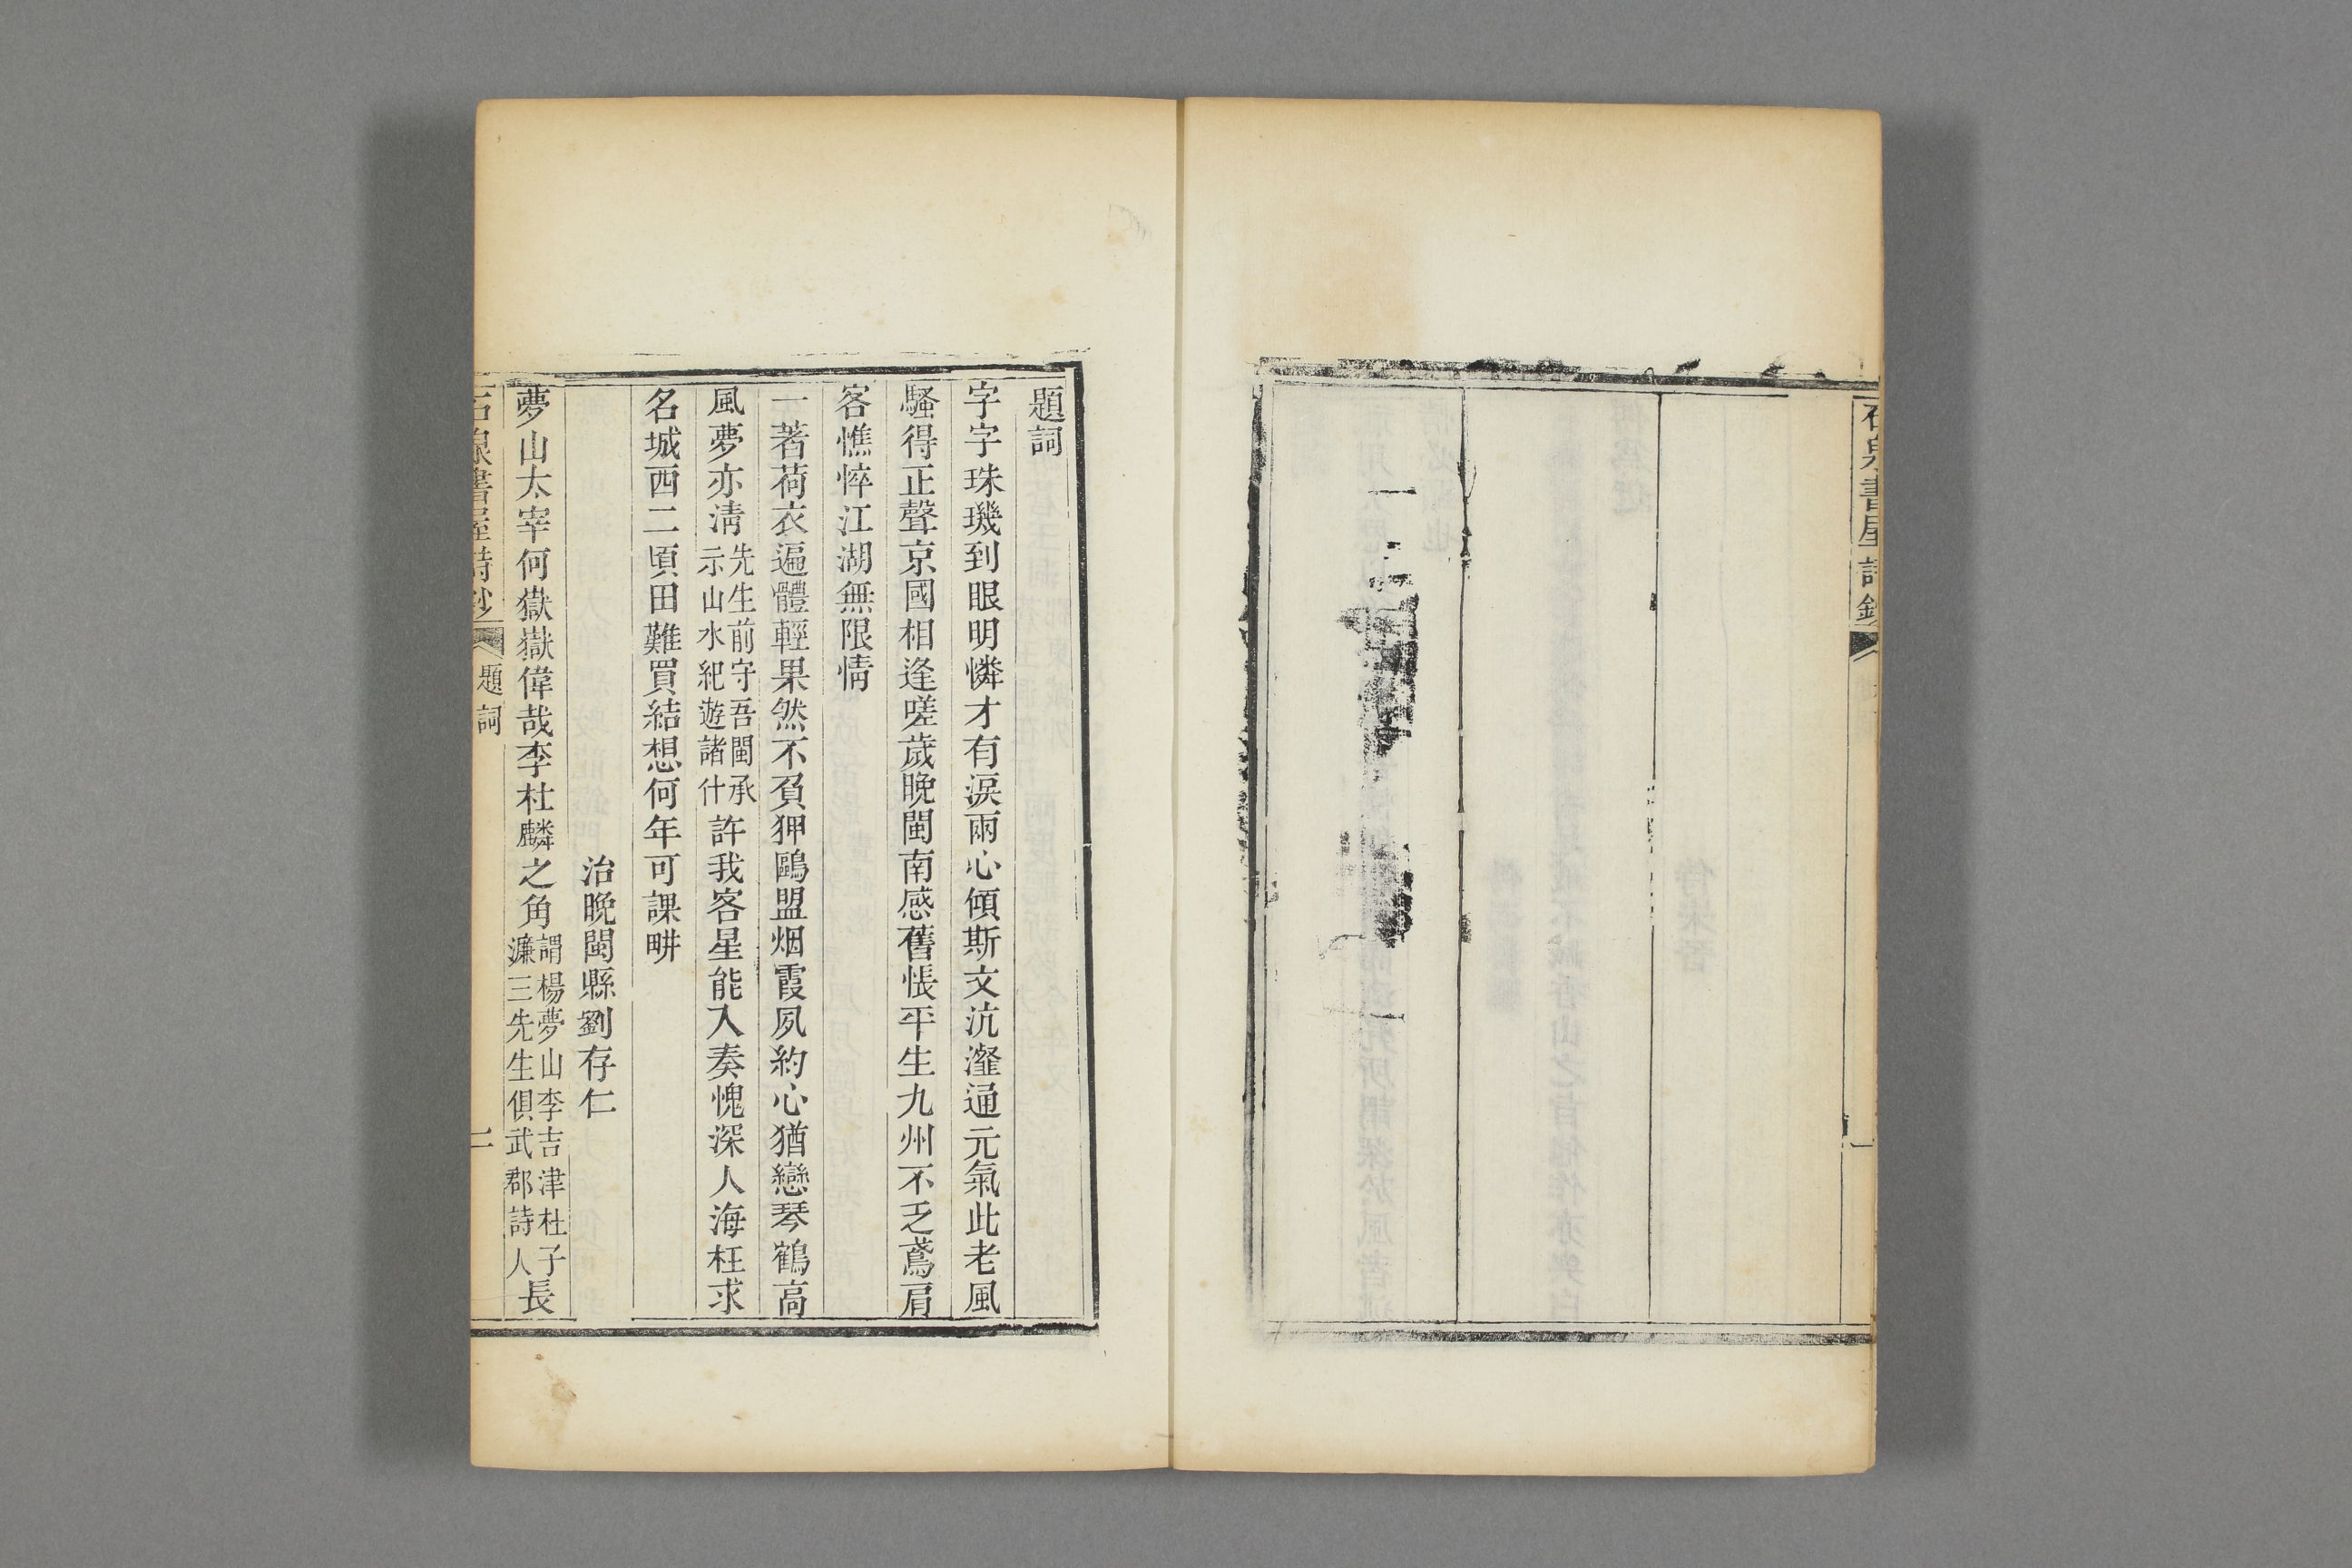 題詞
字字珠璣到眼明憐才有淚兩心傾斯文沆瀣通元氣此老風
騷得正聲京國相逢嗟歲晚閩南感舊悵平生九州不乏鳶肩
客憔悴江湖無限情
一著荷衣遍體輕果然不負狎鷗盟烟霞夙約心猶戀琴鶴高
風夢亦淸先生前守吾閩承示山水紀遊諸什許我客星能入奏愧深人海枉求
名城西二頃田難買結想何年可課畊
治晚閩縣劉存仁
夢山太宰何嶽嶽偉哉李杜麟之角謂楊夢山李吉津杜子濂三先生俱武郡詩人長
石泉書屋詩鈔
題詞
二